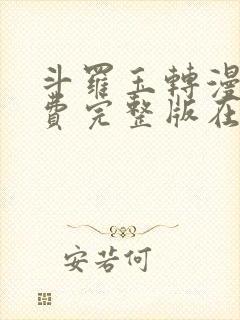 斗羅玉轉漫
費完整版在
安若何